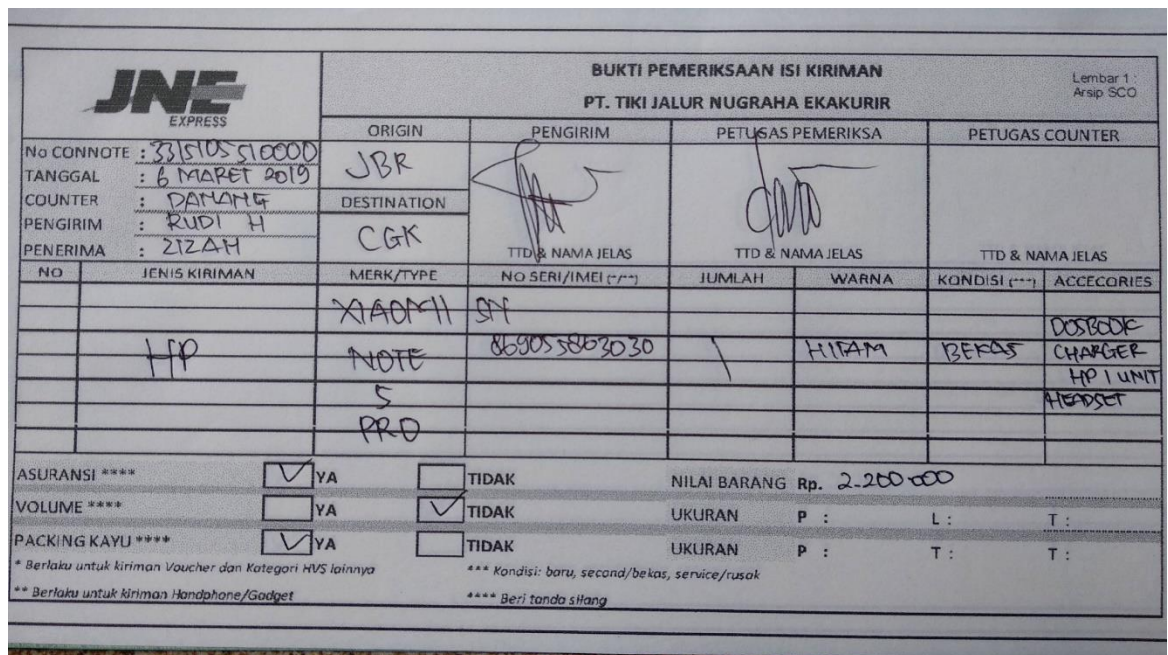 JNE
EXPRESS
BUKTI PEMERIKSAAN ISI KIRIMAN
PT. TIKI JALUR NUGRAHA EKAKURIR
Lembar 1 :
Arsip SCO
No CONNOTE : 3315105510000
TANGGAL : 6 MARET 2019
COUNTER : DANANG
PENGIRIM : RUDI H
PENERIMA : ZIZAH
ORIGIN
JBR
DESTINATION
CGK
PENGIRIM
TTD & NAMA JELAS
PETUGAS PEMERIKSA
TTD & NAMA JELAS
PETUGAS COUNTER
TTD & NAMA JELAS
NO JENIS KIRIMAN MERK/TYPE NO SERI/IMEI (*/**) JUMLAH WARNA KONDISI (***) ACCECORIES
XIAOMI SN
DOSBOOK
HP NOTE 869055863030 1 HITAM BEKAS CHARGER
HP 1 UNIT
5 HEADSET
PRO
ASURANSI **** YA TIDAK NILAI BARANG Rp. 2.200.000
VOLUME **** YA TIDAK UKURAN P : L : T :
PACKING KAYU **** YA TIDAK UKURAN P : T : T :
* Berlaku untuk kiriman Voucher dan Kategori HVS lainnya *** Kondisi: baru, second/bekas, service/rusak
** Berlaku untuk kiriman Handphone/Gadget **** Beri tanda silang